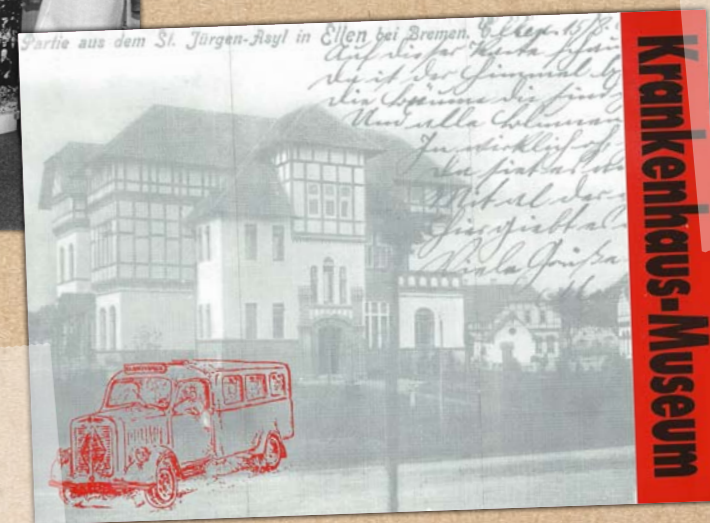 Partie aus dem St. Jürgen-Asyl in Ellen bei Bremen. Ellen 15/8.
Auf dieser Karte
Da ist der Himmel
Die Bäume die sind
Und alle Blumen
Ja wirklich
Da sieht es
Mit al der
Hier giebt e
Viele Grüße
Krankenhaus-Museum